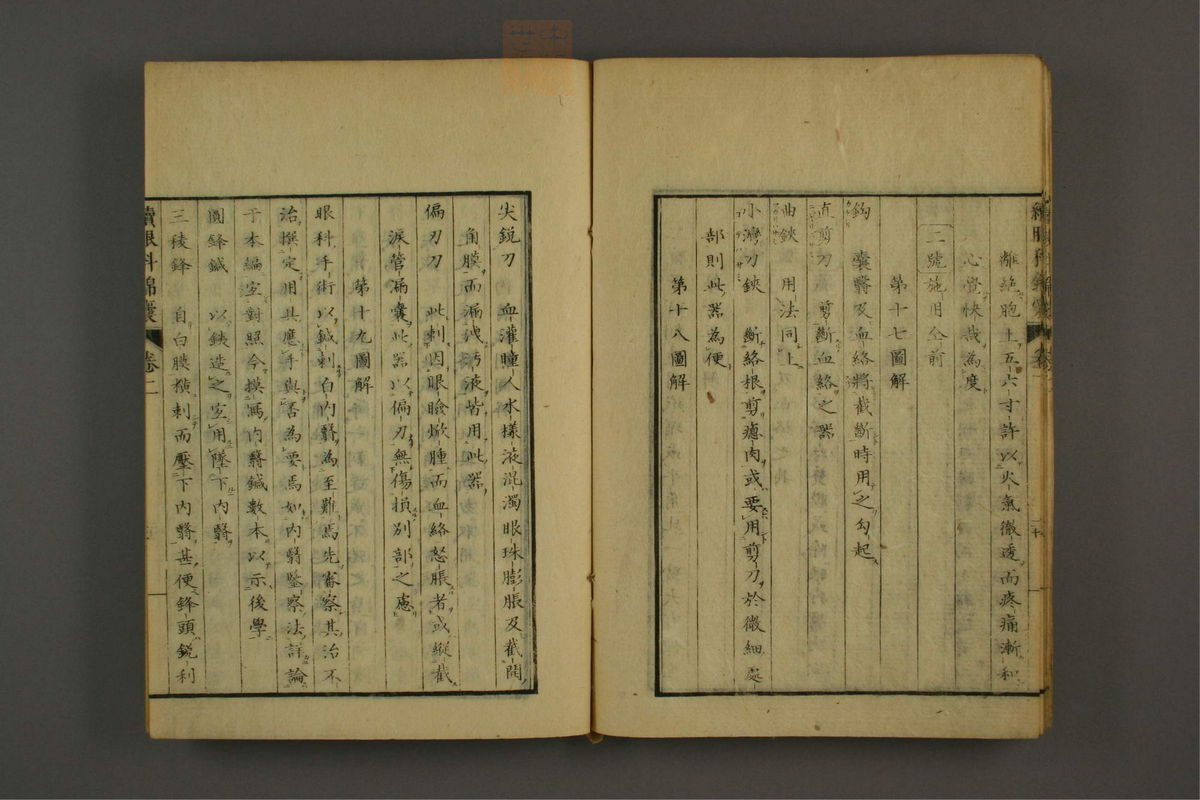 離絶胞上五六寸許以火氣徹透而疼痛漸和
心覺快哉為度
三號施用仝前
第十七圖解
鈎 嚢瞖及血絡將截斷時用之勾起
直剪刀 剪斷血絡之器
曲鋏 用法同上
小灣刀鋏 斷絡根剪瘜肉或要用剪刀於微細處
部則此器為便
第十八圖解
尖鋭刀 血灌瞳人水樣液混濁眼珠膨脹及截開
角膜而漏洩肪液皆用此器
偏刃刀 此刺因眼瞼焮腫而血絡怒脹者或縱截
淚管漏嚢此器以偏刃無傷損別部之慮
第十九圖解
眼科手術以鍼刺白内瞖為至難焉先審察其治不
治撰定用其應手與否為要焉如内瞖鑒察法詳論
于本編宜對照今摸寫内瞖鍼數本以示後學
圓鋒鍼 以鐵造之宜用墜下内瞖
三稜鋒 自白膜橫刺而壓下内瞖甚便鋒頭鋭利
續眼科錦嚢 卷二